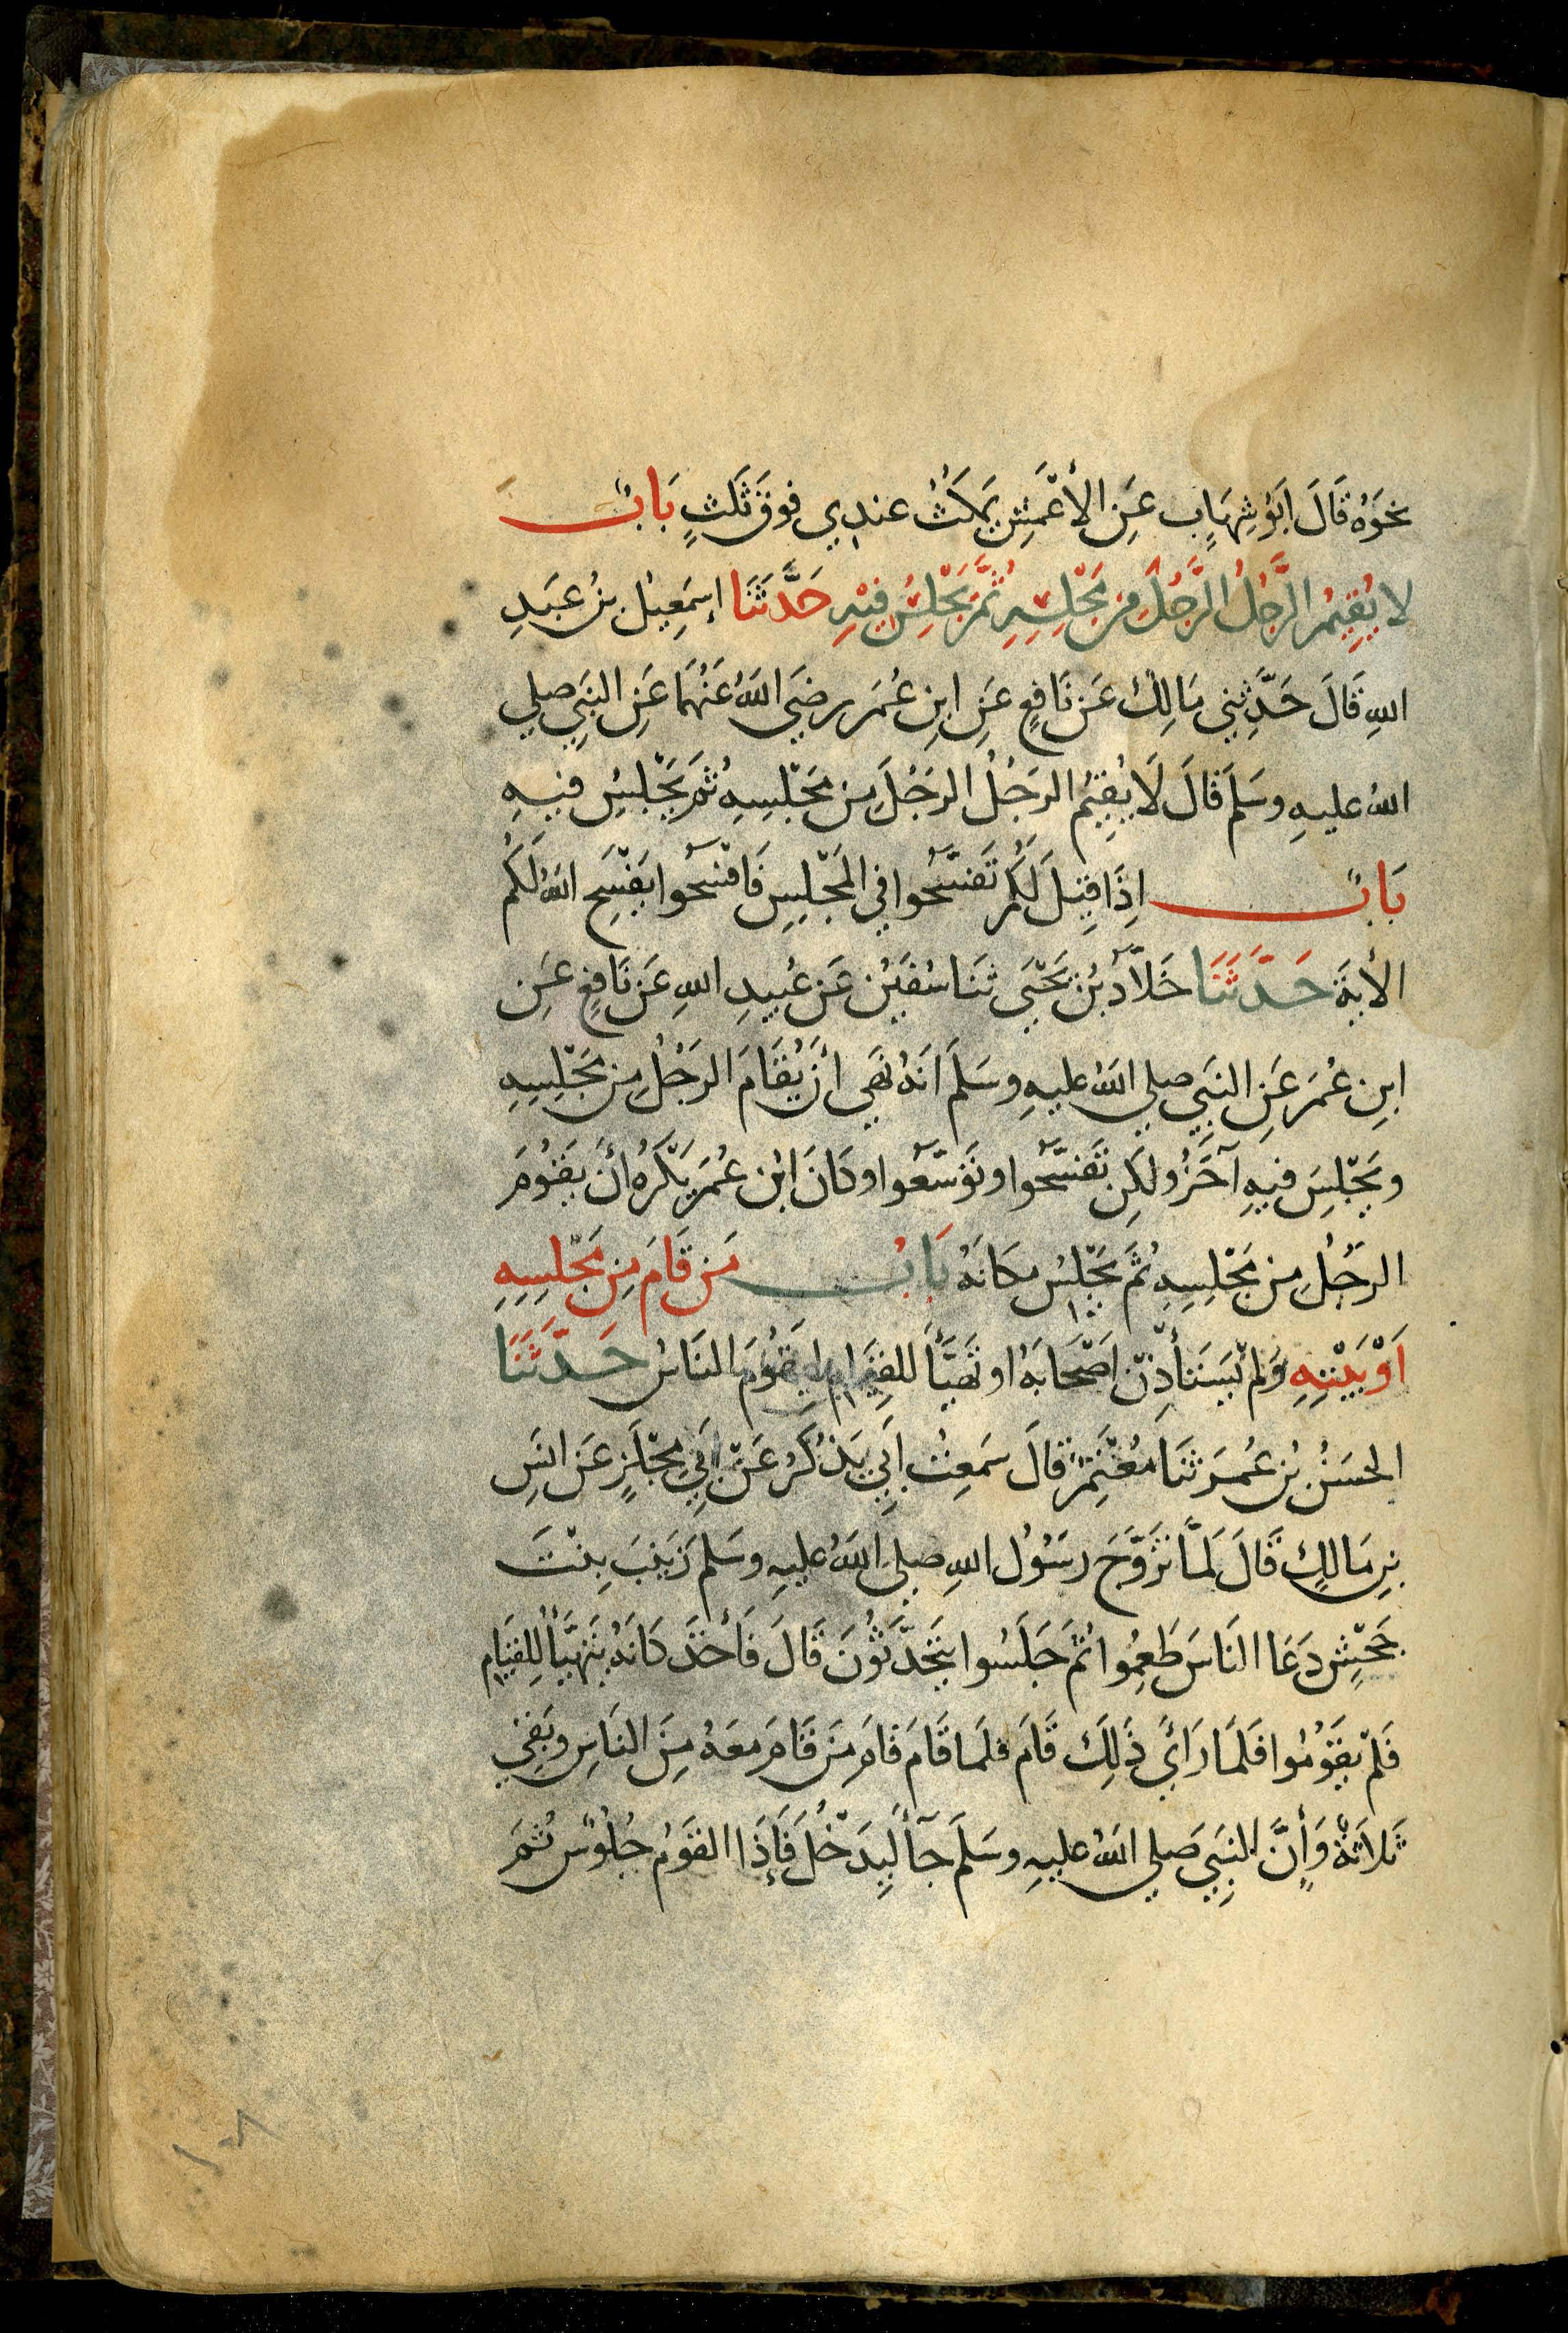 نحوَهُ قَالَ ابَوُ شِهَابٍ عَنِ الأَعْمَشِ يَمكَثُ عندِي فوقَ ثَلَثٍ بَابٌ
لا يُقِيمُ الرَّجُلُ الرَّجُلَ مِن مَجْلِسِهِ ثُمَّ يَجْلِسُ فِيْهِ حَدَّثَنَا إِسمَعِيلُ بنُ عَبدِ
اللهِ قَالَ حَدَّثَنِي مَالِكٌ عَن نَافِعٍ عَنِ ابنِ عُمَرَ رضَي اللهُ عَنهُمَا عَنِ النَبِي صلي
اللهُ عليهِ وسَلمَ قَالَ لَا يُقِيمُ الرجُلُ الرجُلَ مِن مَجْلِسِهِ ثُمَ يَجْلِسُ فيهِ
بَابٌ اِذَا قِيلَ لَكُم تَفَسَّحُوا فِي المَجْلِسِ فَافْسَحُوا يَفْسَحِ اللهُ لَكُم
الأيةَ حَدَّثَنَا خَلاَّدُ بنُ يَحْيَى ثنَا سُفيَنُ عَن عُبَيدِ اللهِ عَن نَافِعٍ عَنِ
ابنِ عُمَرَ عَنِ النَبِي صلي اللهُ عليهِ وسَلمَ انَهُ نَهَي أنْ يُقَامَ الرجُلُ مِن مَجْلِسِهِ
ويَجْلِسَ فيهِ آخَرُ ولكِن تَفَسَّحُوا وتَوَسَّعُوا وكَانَ ابْن عُمَرَ يَكْرَهُ أنْ يَقُومَ
الرَجُلُ مِن مَجْلِسِهِ ثُمَ يَجْلِسُ مكَانَهُ بَابُ مَن قَامَ مِن مَجْلِسِهِ
اَوْ بَيْتِهِ وَلَمْ يَسْتَأذِنْ اَصْحَابَهُ او تَهَيَّأَ لِلقِيَامِ لِيَقُومَ النَاسُ حَدَّثَنَا
الحَسَنُ بنُ عُمَرَ ثنَا مُعْتَمِرٌ قَالَ سَمِعتُ اَبِي يَذْكُرُ عَنْ اَبِي مِجْلَزٍ عَن انَسِ
بنِ مَالِكٍ قَالَ لمَّا تَزَوَّجَ رسُولُ اللهِ صلي اللهُ عليهِ وسَلم زَينَبَ بِنْتَ
جَحْشٍ دَعَا النَاسَ طَعِمُوا ثُمَ جَلَسُوا يتَحَدَّثُونَ قَالَ فَأخَذَ كَانَهُ يَتَهَيَّأُ لِلقيَامِ
فَلمْ يَقُومُوا فَلَمَا رَأَي ذَلِكَ قَامَ فلمَا قَامَ قَامَ مَن قَامَ مَعَهُ مِنَ النَاسِ وبَقِي
ثَلاثَةٌ وَإِنَّ النَبِي صَلي اللهُ عليهِ وسَلمَ جَآ لِيَدْخُلَ فَإِذَا القَومُ جُلُوسٌ ثُمَ
١٠٨